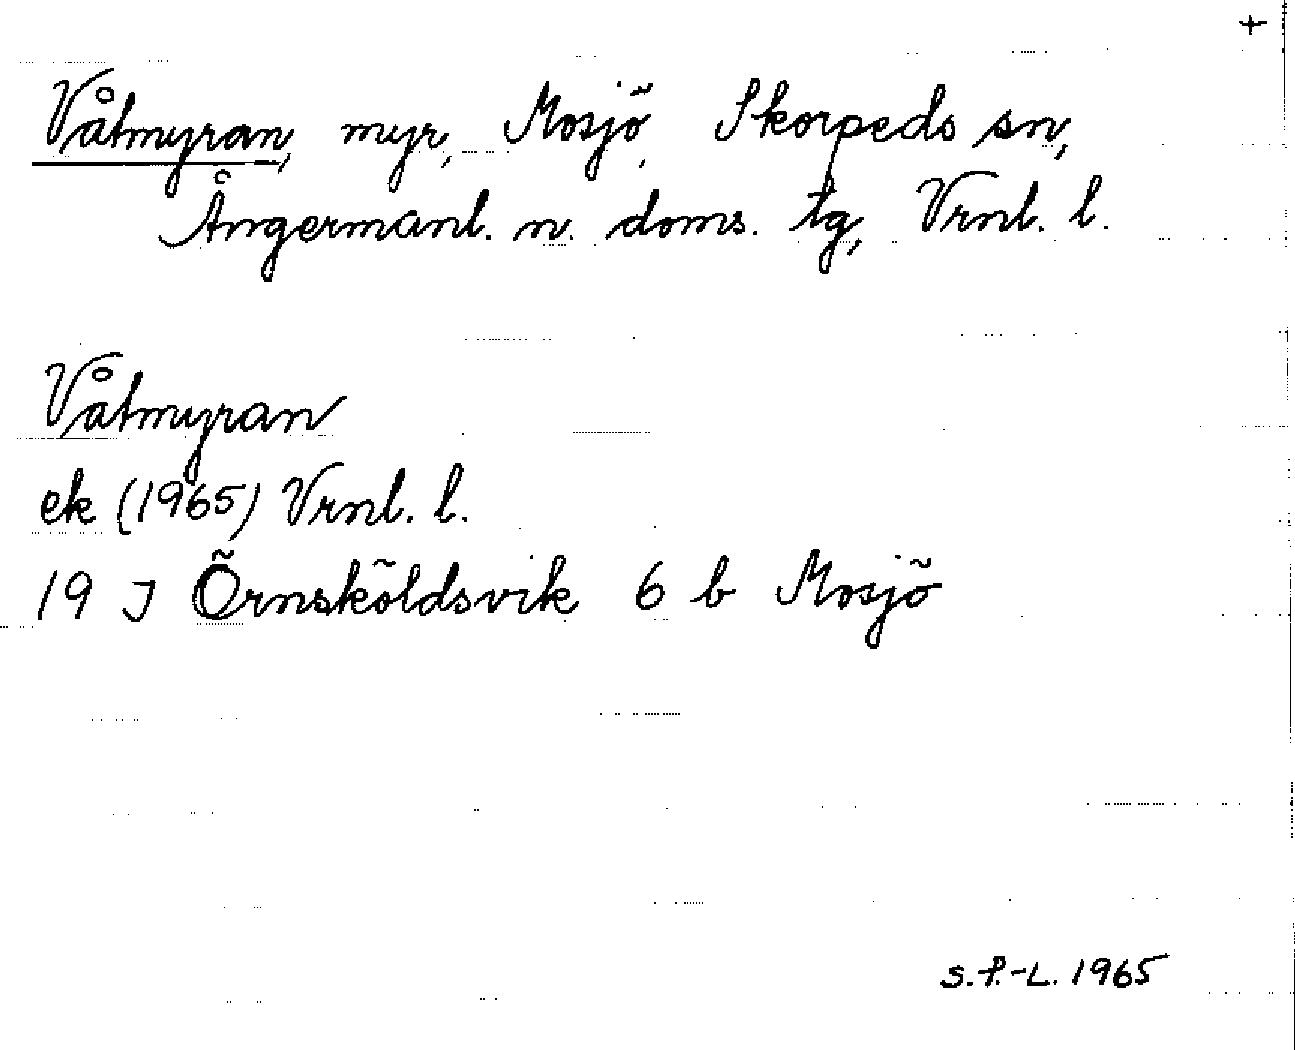 +
Våtmyran, myr, Mosjö, Skorpeds sn,
Ångermanl. n. doms. tg, Vrnl. l.
Våtmyran
ek (1965) Vrnl. l.
19 J Örnsköldsvik 6 b Mosjö
S.P.-L. 1965